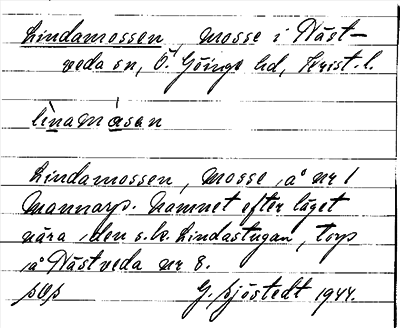 Lindamossen, mosse i Näst-
veda sn, Ö. Göinge hd, Krist. l.
linamåsen
Lindamossen, mosse å nr 1
Mannarp. Namnet efter läget
nära den s.k. Lindastugan, torp
å Nästveda nr 8.
G. Sjöstedt 1944.